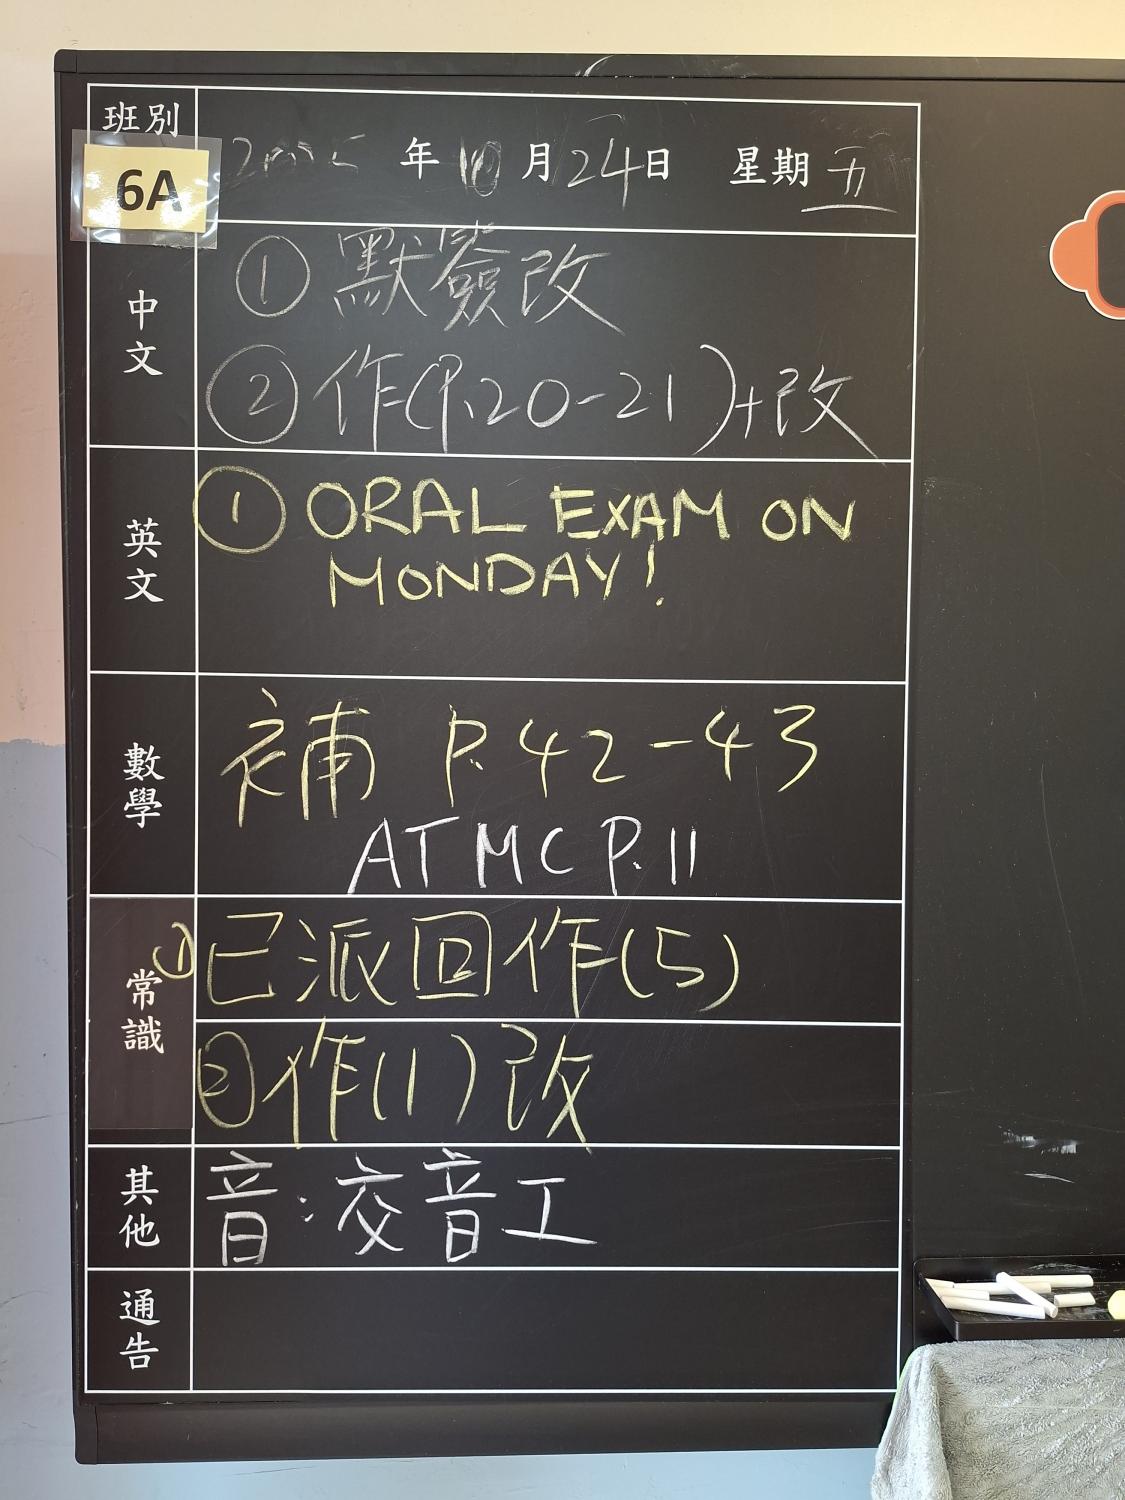 班別
6A
2025 年 10 月 24 日 星期 五
中文
① 默簽改
② 作(P.20-21)+改
英文
① ORAL EXAM ON
MONDAY!
數學
補 P.42-43
AT MC P.11
常識
① 已派回作(5)
② 作(1)改
其他
音:交音工
通告